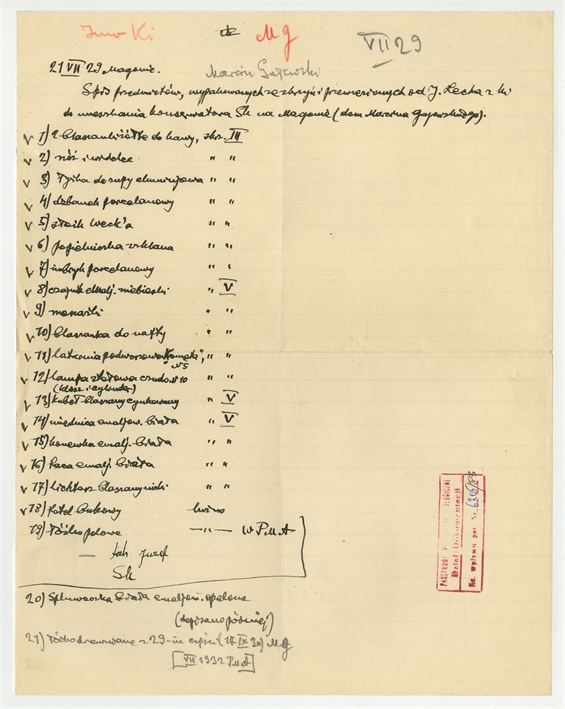 Inw Ki Mg VII 29
21 VII 29 Magonie. Marcin Gajewski
Spis przedmiotów, wypakowanych ze skrzyń i przewiezionych od J. Lecha z
do mieszkania konserwatora Sk na Magonie (dom Marcina Gajewskiego).
v 1) 2 blaszanki żółte do kawy, skr. III
v 2) nóż i widelec " "
v 3) łyżka do zupy aluminjowa " "
v 4) dzbanek porcelanowy " "
v 5) słoik Weck'a " "
v 6) popielniczka szklana " "
v 7) imbryk porcelanowy " "
v 8) czajnik emalj. niebieski " V
v 9) menażki " "
v 10) blaszanka do nafty " "
v 11) latarnia podwórzowa "Kometa", " "
No 5
v 12) lampa stołowa No 10 " "
(klosz i cylinder)
v 13) kubeł blaszany cynkowany " V
v 14) miednica emaljow. biała " V
v 15) konewka emalj. biała " "
v 16) kaca emalj. biała " "
v 17) lichtarz blaszany " "
v 18) fotel bukowy luzno
19) łóżko polowe —"— W P.M.A
— Józef
Sk
20) Spluwaczka biała emaljow. opalona
(dopisano później)
21) łóżko drewniane z 29-iu części (17 IX 30) Mg
[VII 1932 P.M.A]
Dział Dokumentacji
Ks. wpływu poz. Nr.